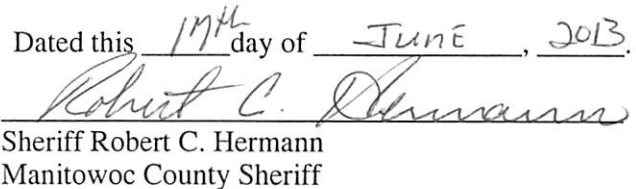 Dated this 17th day of JUNE, 2013.
Robert C. Hermann
Sheriff Robert C. Hermann
Manitowoc County Sheriff